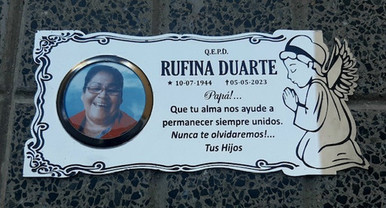 Q.E.P.D.
RUFINA DUARTE
★ 10-07-1944 ✝05-05-2023
Papá!...
Que tu alma nos ayude a
permanecer siempre unidos.
Nunca te olvidaremos!...
Tus Hijos